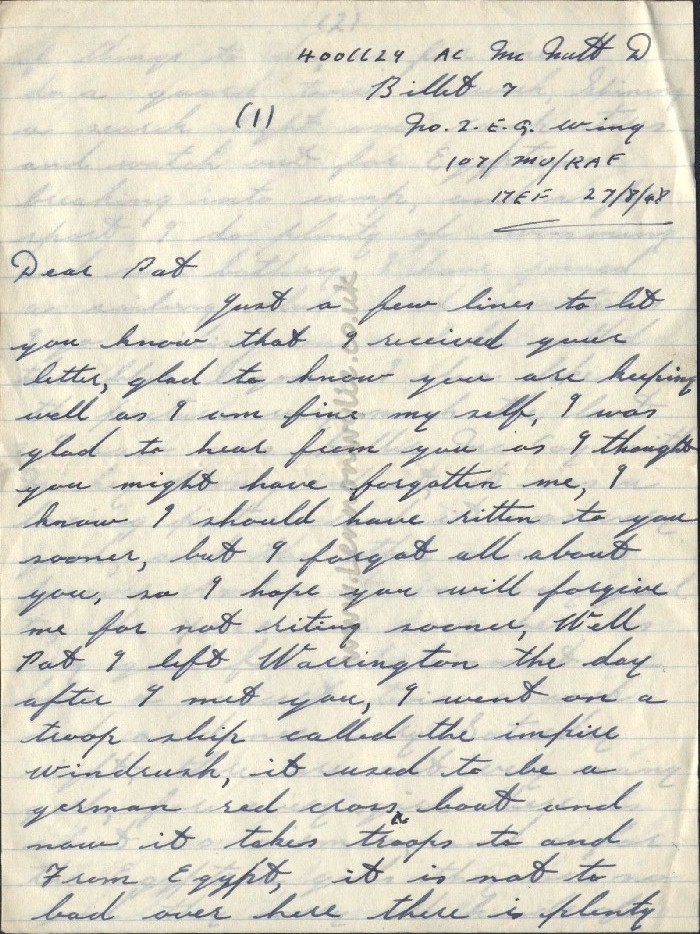 4006624 AC Mc Nutt D
Billet 7
(1)
No. 2. E.G. Wing
107/MU/RAF
MEF 27/8/48
Dear Pat
Just a few lines to let
you know that I received your
letter, glad to know you are keeping
well as I am fine my self, I was
glad to hear from you as I thought
you might have forgotten me, I
know I should have ritten to you
sooner, but I forgot all about
you, so I hope you will forgive
me for not riting sooner, Well
Pat I left Warrington the day
after I met you, I went on a
troop ship called the impire
windrush, it used to be a
german red cross boat and
now it takes troops to and
From Egypt, it is not to
bad over here there is plenty
www.Lennonwylie.co.uk